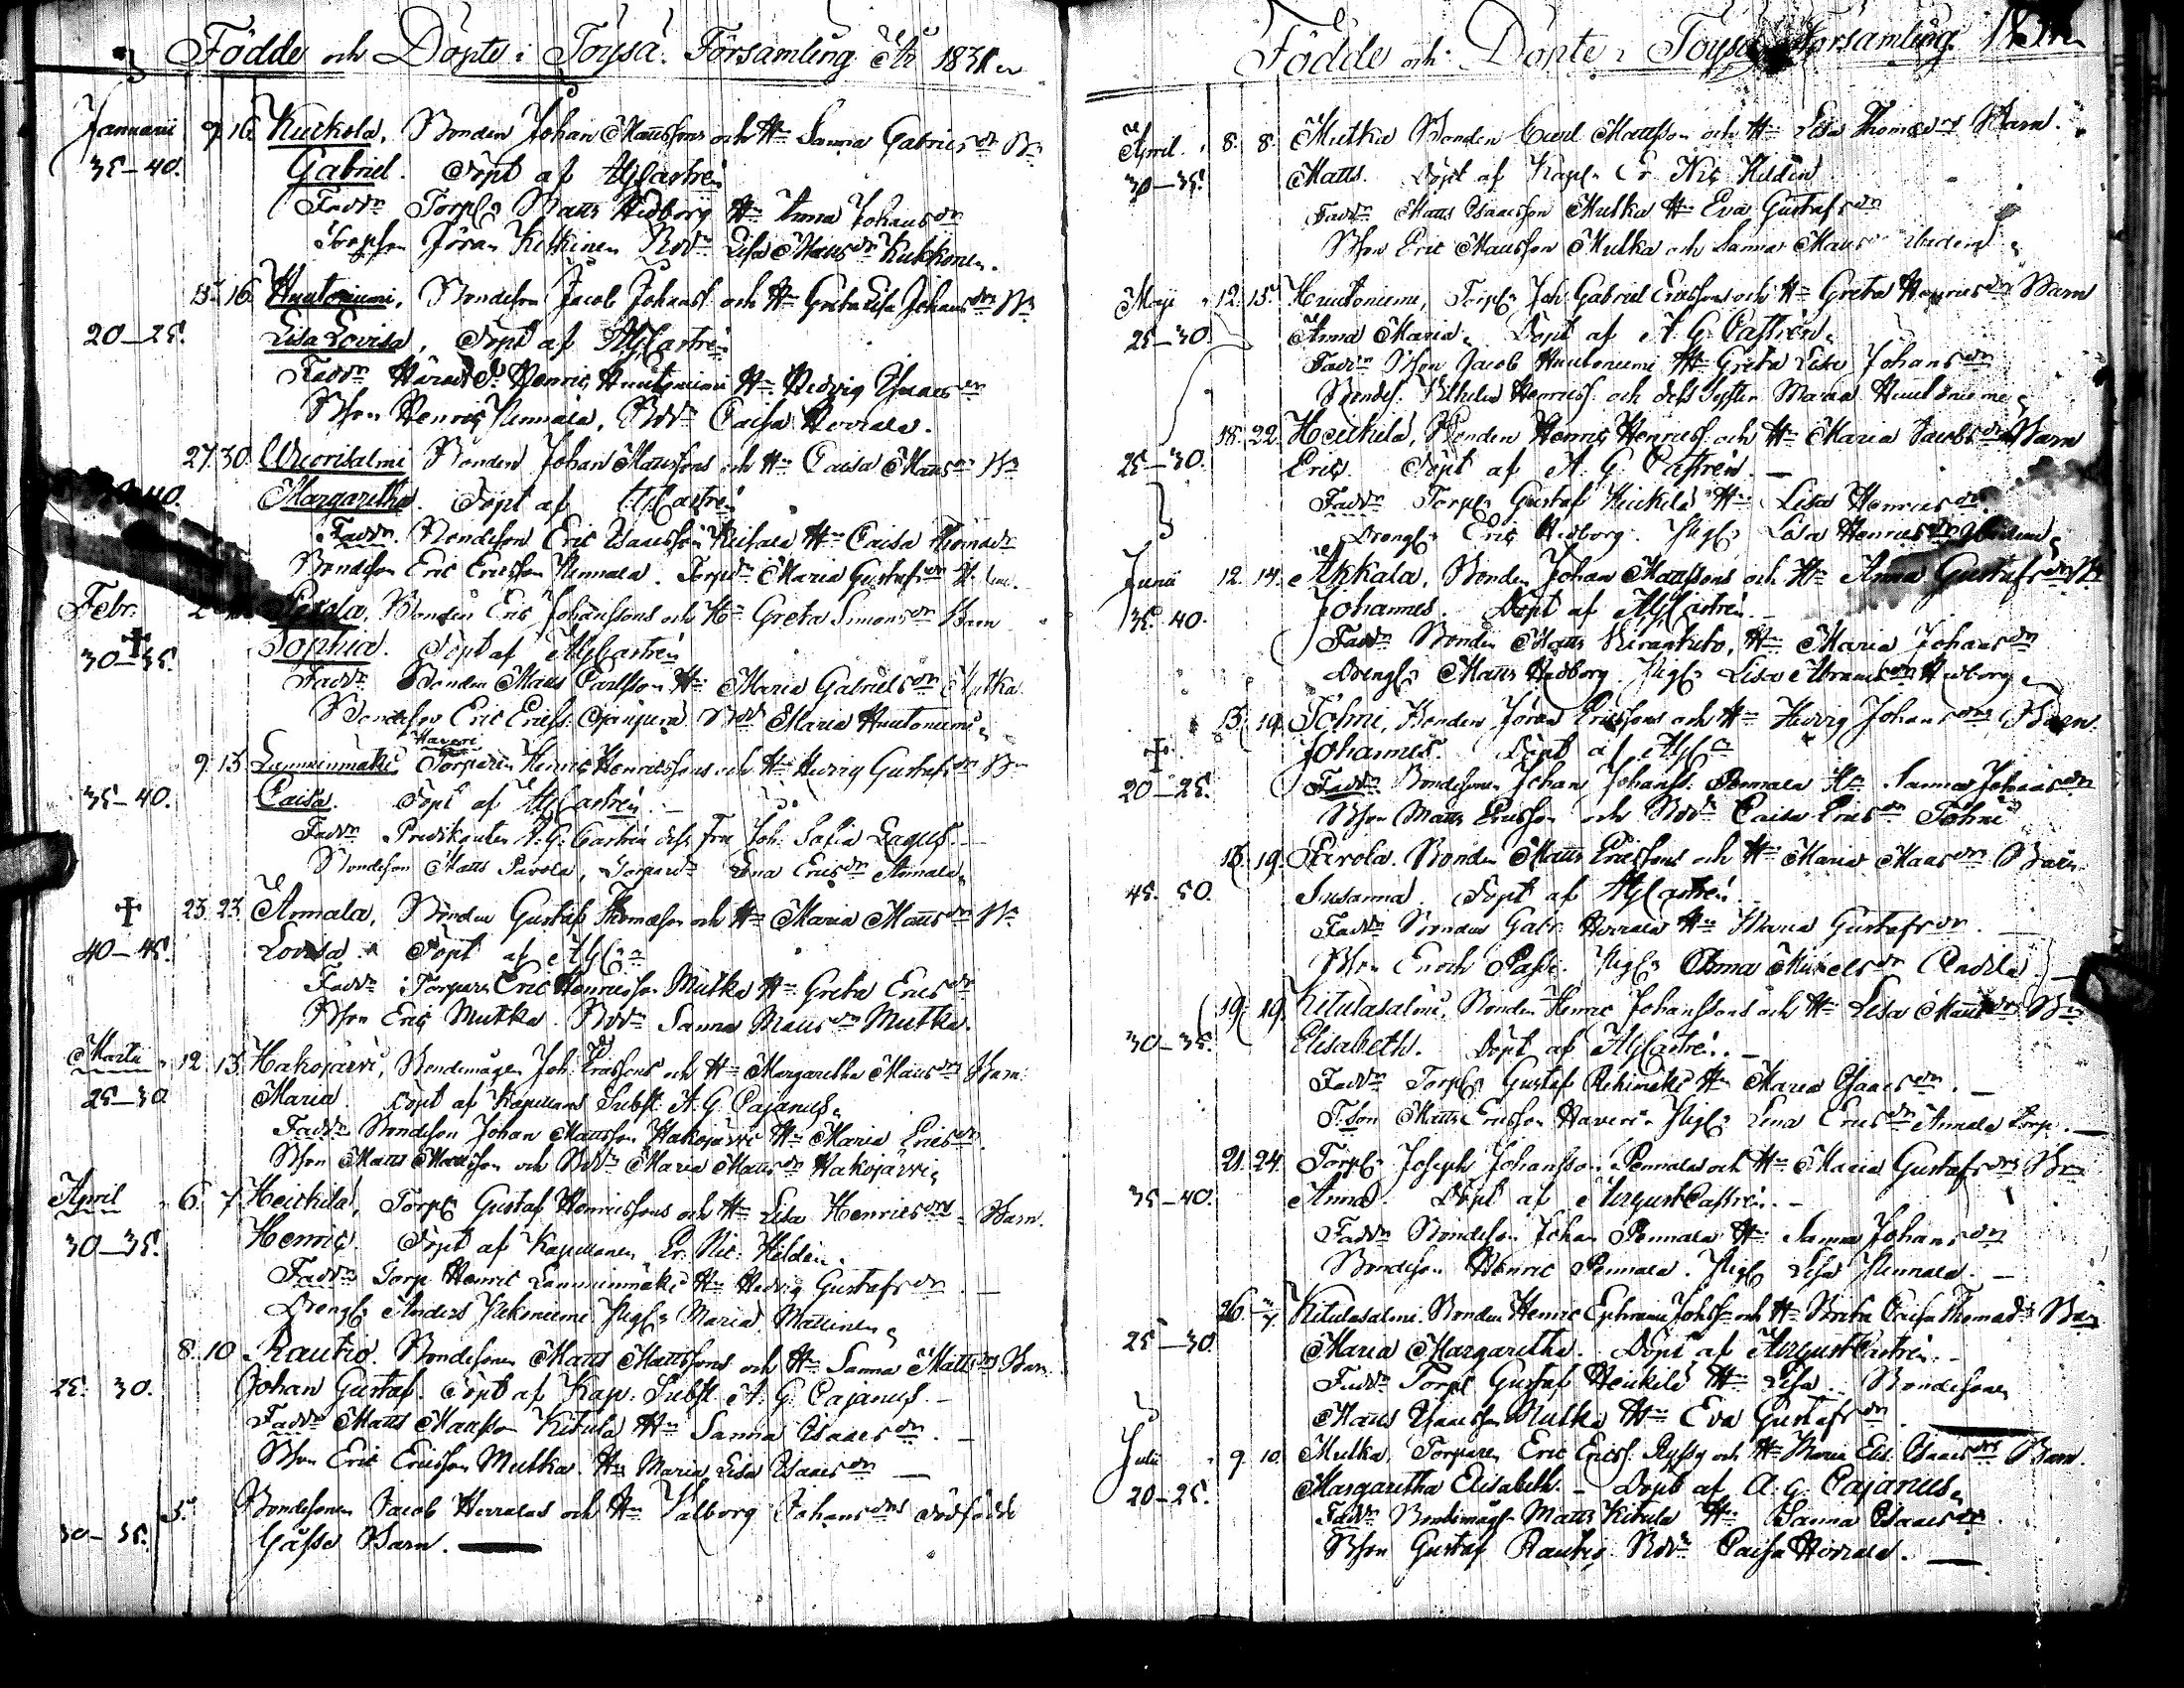 Födde och Döpte i Töysä Församling År 1831
Januarii 9. 16. Kuckola, Bonden Johan Mattssons och Hu Sanna Gabrielsdr Bn
35–40. Gabriel. Döpt af AGCastrén
Faddr Torp. Matts Hedborg Hu Anna Johansdr
Jöran Keskinen Lisa Mattsdr Kukkonen.
15. 16. Huutoniemi, Bondeson Jacob Johanss. och Hu Greta Lisa Johansdrs Bn
20–25. Lisa Lovisa, Döpt af AGCastrén
Faddr Henric Huutoniemi Hu Hedvig Isaacsdr
Bson Henric Pennala, Bdr Caisa Herrala.
27. 30. Wuorisalmi Bonden Johan Mattssons och Hu Caisa Mattsdr Bn
40. Margaretha. Döpt af AGCastrén
Faddr. Bondeson Eric Isaacsson Hu Caisa Thomasdr
Bondeson Eric Ericsson Pennala. Maria Gustafsdr
Febr. Perola, Bonden Eric Johanssons och Hu Greta Simonsdr Barn
30–35. Sophia. Döpt af AGCastrén
Faddr Bonden Matts Carlsson Hu Maria Gabrielsdr Mutka
Bondeson Eric Ericss. Bdr Maria Huutoniemi
Haveri
9. 13. Lamminmäki Torparen Henric Henricssons och Hu Hedvig Gustafsdr Bn
35–40. Caisa. Döpt af AGCastrén. –
Faddr Predikanten A. G. Castrén dess Fru Joh. Sofia Lagus. –
Bondeson Matts Parola, Lena Ericsdr Annala
† 23. 23. Annala, Bonden Gustaf Thomasson och Hu Maria Mattsdr Bn
40–45. Lovisa. Döpt af AGCn
Faddr Torparen Eric Henricsson Mutka Hu Greta Ericsdr
Bson Eric Mutka. Bdr Sanna Mattsdr Mutka.
Martii 12. 13. Hakojärvi, Bondemågen Joh. Ericssons och Hu Margaretha Mattsdr Barn
25–30 Maria. Döpt af Kapellans Subst. A. G. Cajanus
Faddr Bondeson Johan Mattsson Hakojärvi Hu Maria Ericsdr
Bson Matts Mattsson och Bdr Maria Mattsdr Hakojärvi
April 6. 7 Heickilä, Torp. Gustaf Henricssons och Hu Lisa Henricsdrs Barn.
30–35. Henric. Döpt af Kapellanen Er. Nic. Hildén
Faddr Torp Henric Lamminmäki Hu Hedvig Gustafsdr –
Drengn Anders Pigan Maria Mattinen
8. 10 Rautio. Bondesonen Matts Mattssons och Hu Sanna Mattsdrs Barn
25. 30. Johan Gustaf. Döpt af Kap. Subst. A. G. Cajanus –
Faddr Matts Mattsson Kitula Hu Sanna Isaacsdr. –
Bson Eric Ericsson Mutka. Hu Maria Lisa Isaacsdr –
5. Bondesonen Jacob Herralas och Hu Valborg Johansdrs dödfödde
30–35. Gåsse Barn.
Födde och Döpte i Töysä Församling
April 8. 8. Mutka Bonden Carl Mattsson och Hu Lisa Thomasdrs Barn.
30–35. Matts. Döpt af Kapn Er Nic Hildén
Faddr Matts Isaacsson Mutka Hu Eva Gustafsdr
Bson Eric Mattsson Mutka och Sanna Mattsdr ibidem
Maji 12. 15. Huutoniemi, Torpn Joh. Gabriel Ericssons och Hu Greta Henricsdrs Barn
25–30. Anna Maria. Döpt af A. G. Castrén.
Faddr Bson Jacob Huutoniemi Hu Greta Lisa Johansdr
Bondes. Wilhelm Henricss. och dess Syster Maria Huutoniemi
18. 22. Heickilä, Bonden Henric Henricss. och Hu Maria Jacobsdrs Barn
25–30. Eric. Döpt af A. G. Castrén. –
Faddr Torpn Gustaf Heickilä Hu Lisa Henricsdr
Drengn Eric Hedborg. Pign Lisa Henricsdr ibidem
Junii 12. 14. Akkala, Bonden Johan Mattssons och Hu Anna Gustafsdrs Bn
35. 40. Johannes. Döpt af AGCastrén
Faddr Bonden Matts Hu Maria Johansdr
Drengn Matts Hedborg. Pign Lisa Abramsdr Hedborg
13. 19. Töhni, Bonden Jöran Ericssons och Hu Hedvig Johansdrs Barn.
† Johannes. Döpt af AGCn
20–25. Faddr. Bondesonen Johan Johanss. Pennala Hu Sanna Johansdr
Bson Matts Ericsson och Bdr Caisa Ericsdr Töhni
13. 19. Perola. Bonden Matts Ericssons och Hu Maria Mattsdr Barn
45. 50. Susanna. Döpt af AGCastrén.
Faddr Bonden Gabr. Herrala Hu Maria Gustafsdr. –
Bson Enoch Passi. Pign Anna Michelsdr
19. 19. Kitulasalmi, Bonden Henric Johanssons och Hu Lisa Mattsdrs Bn
30–35. Elisabeth. Döpt af AGCastrén. –
Faddr Torpn Gustaf Hu Maria Isaacsdr. –
T.son Matts Ericsson Haveri. Pign Lena Ericsdr Annala Torp. –
21. 24. Torpn Joseph Johansson Pennalas och Hu Maria Gustafsdrs Bn
35–40. Anna. Döpt af August Castrén. –
Faddr Bondeson Johan Pennala Hu Sanna Johansdr
Bondeson Henric Pennala. Pign Lisa Pennala. –
26. Kitulasalmi. Bonden Henric Ephraim Johss. och Hu Greta Caisa Thomasdr Bn
25–30. Maria Margaretha. Döpt af August Castrén. –
Faddr Torpn Gustaf Heickilä Hu Lisa. Bondesonen
Matts Isaacsson Mutka Hu Eva Gustafsdr.
Julii 9. 10. Mutka, Torparen Eric Ericss. Ryssy och Hu Maria Elis. Isaacsdrs Barn.
20–25. Margaretha Elisabeth. – Döpt af A. G. Cajanus
Faddr Bondemågn Matts Kitula Hu Sanna Isaacsdr
Bson Gustaf Rautio. Bdr Caisa Herrala. –